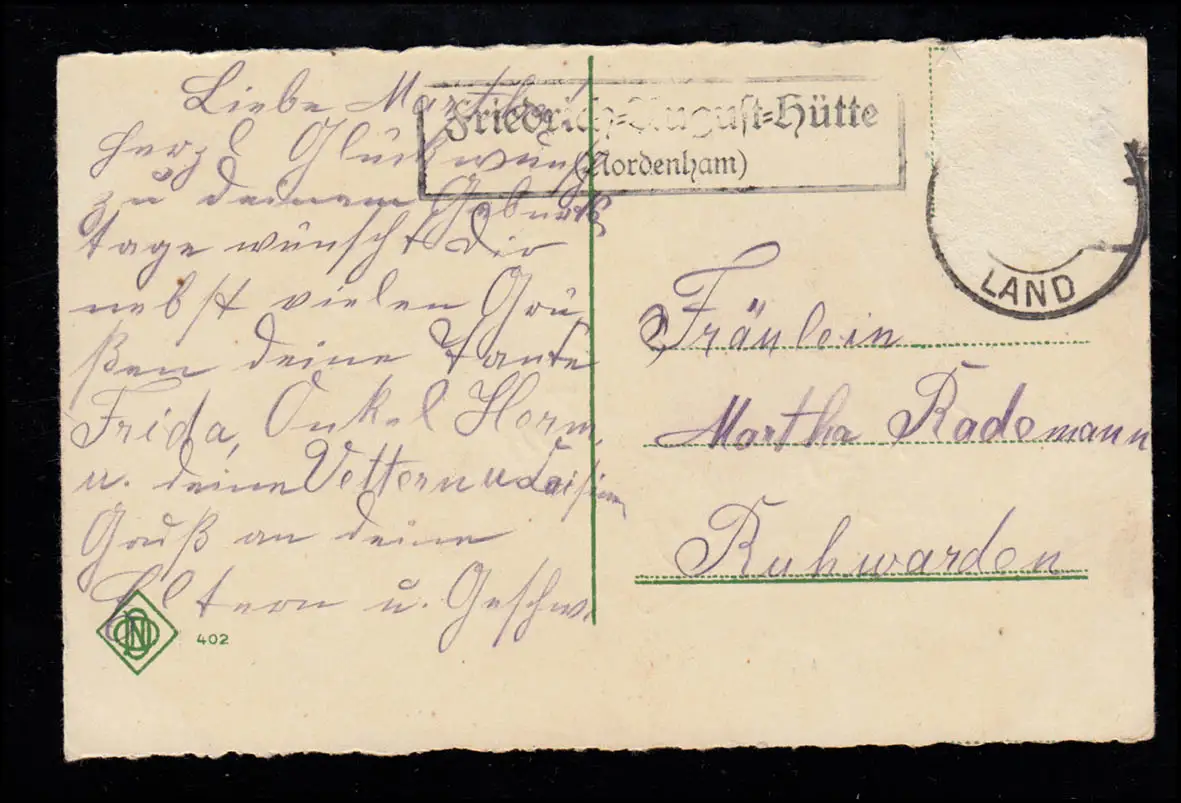 Liebe Martha!
Herzl Glückwunsch
zu deinem Geburts
tage wünscht Dir
nebst vielen Grü
ßen deine Tante
Frida, Onkel Herm,
u. deine Vettern u
Gruß an deine
Eltern u. Geschw.
402
Friedrich-August-Hütte
(Nordenham)
LAND
Fräulein
Martha Rademann
Ruhwarden